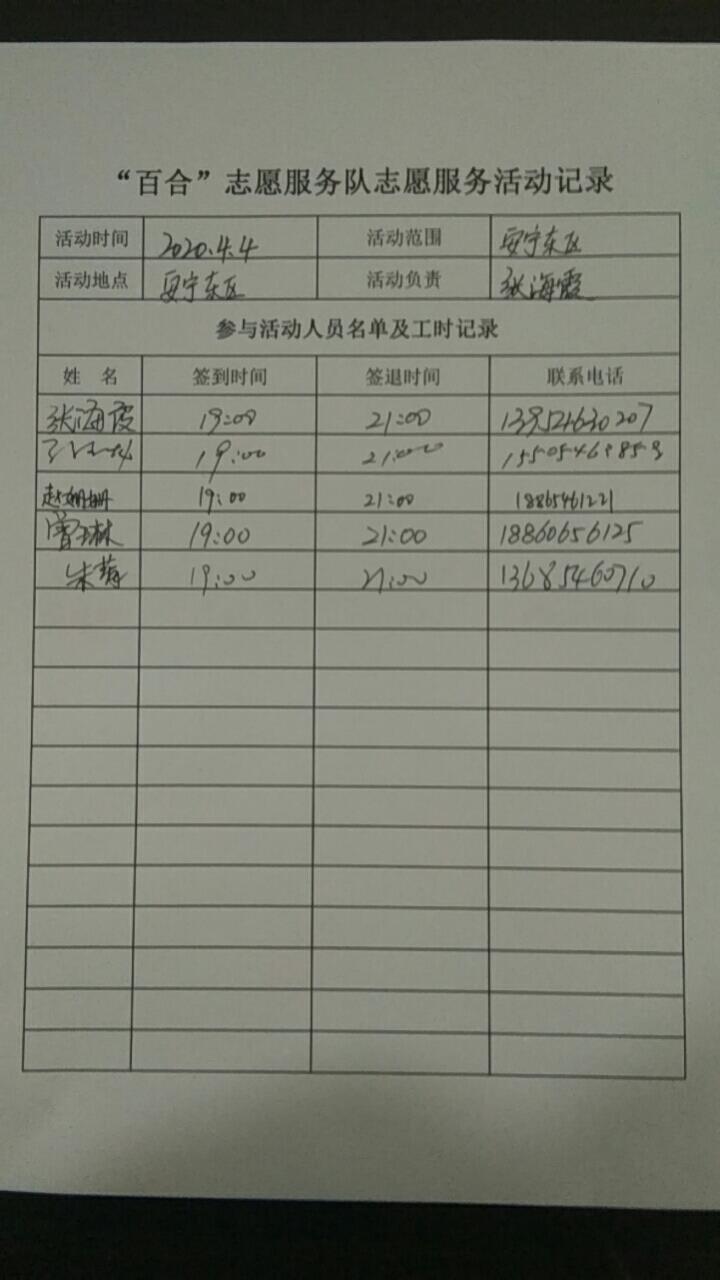 “百合”志愿服务队志愿服务活动记录
活动时间 2020.4.4 活动范围 安宁东区
活动地点 安宁东区 活动负责 张海霞
参与活动人员名单及工时记录
姓 名 签到时间 签退时间 联系电话
张海霞 19:00 21:00
19:00 21:00
赵姗姗 19:00 21:00 18865461221
曾琳 19:00 21:00 18860656125
朱莓 19:00 21:00 13685460710